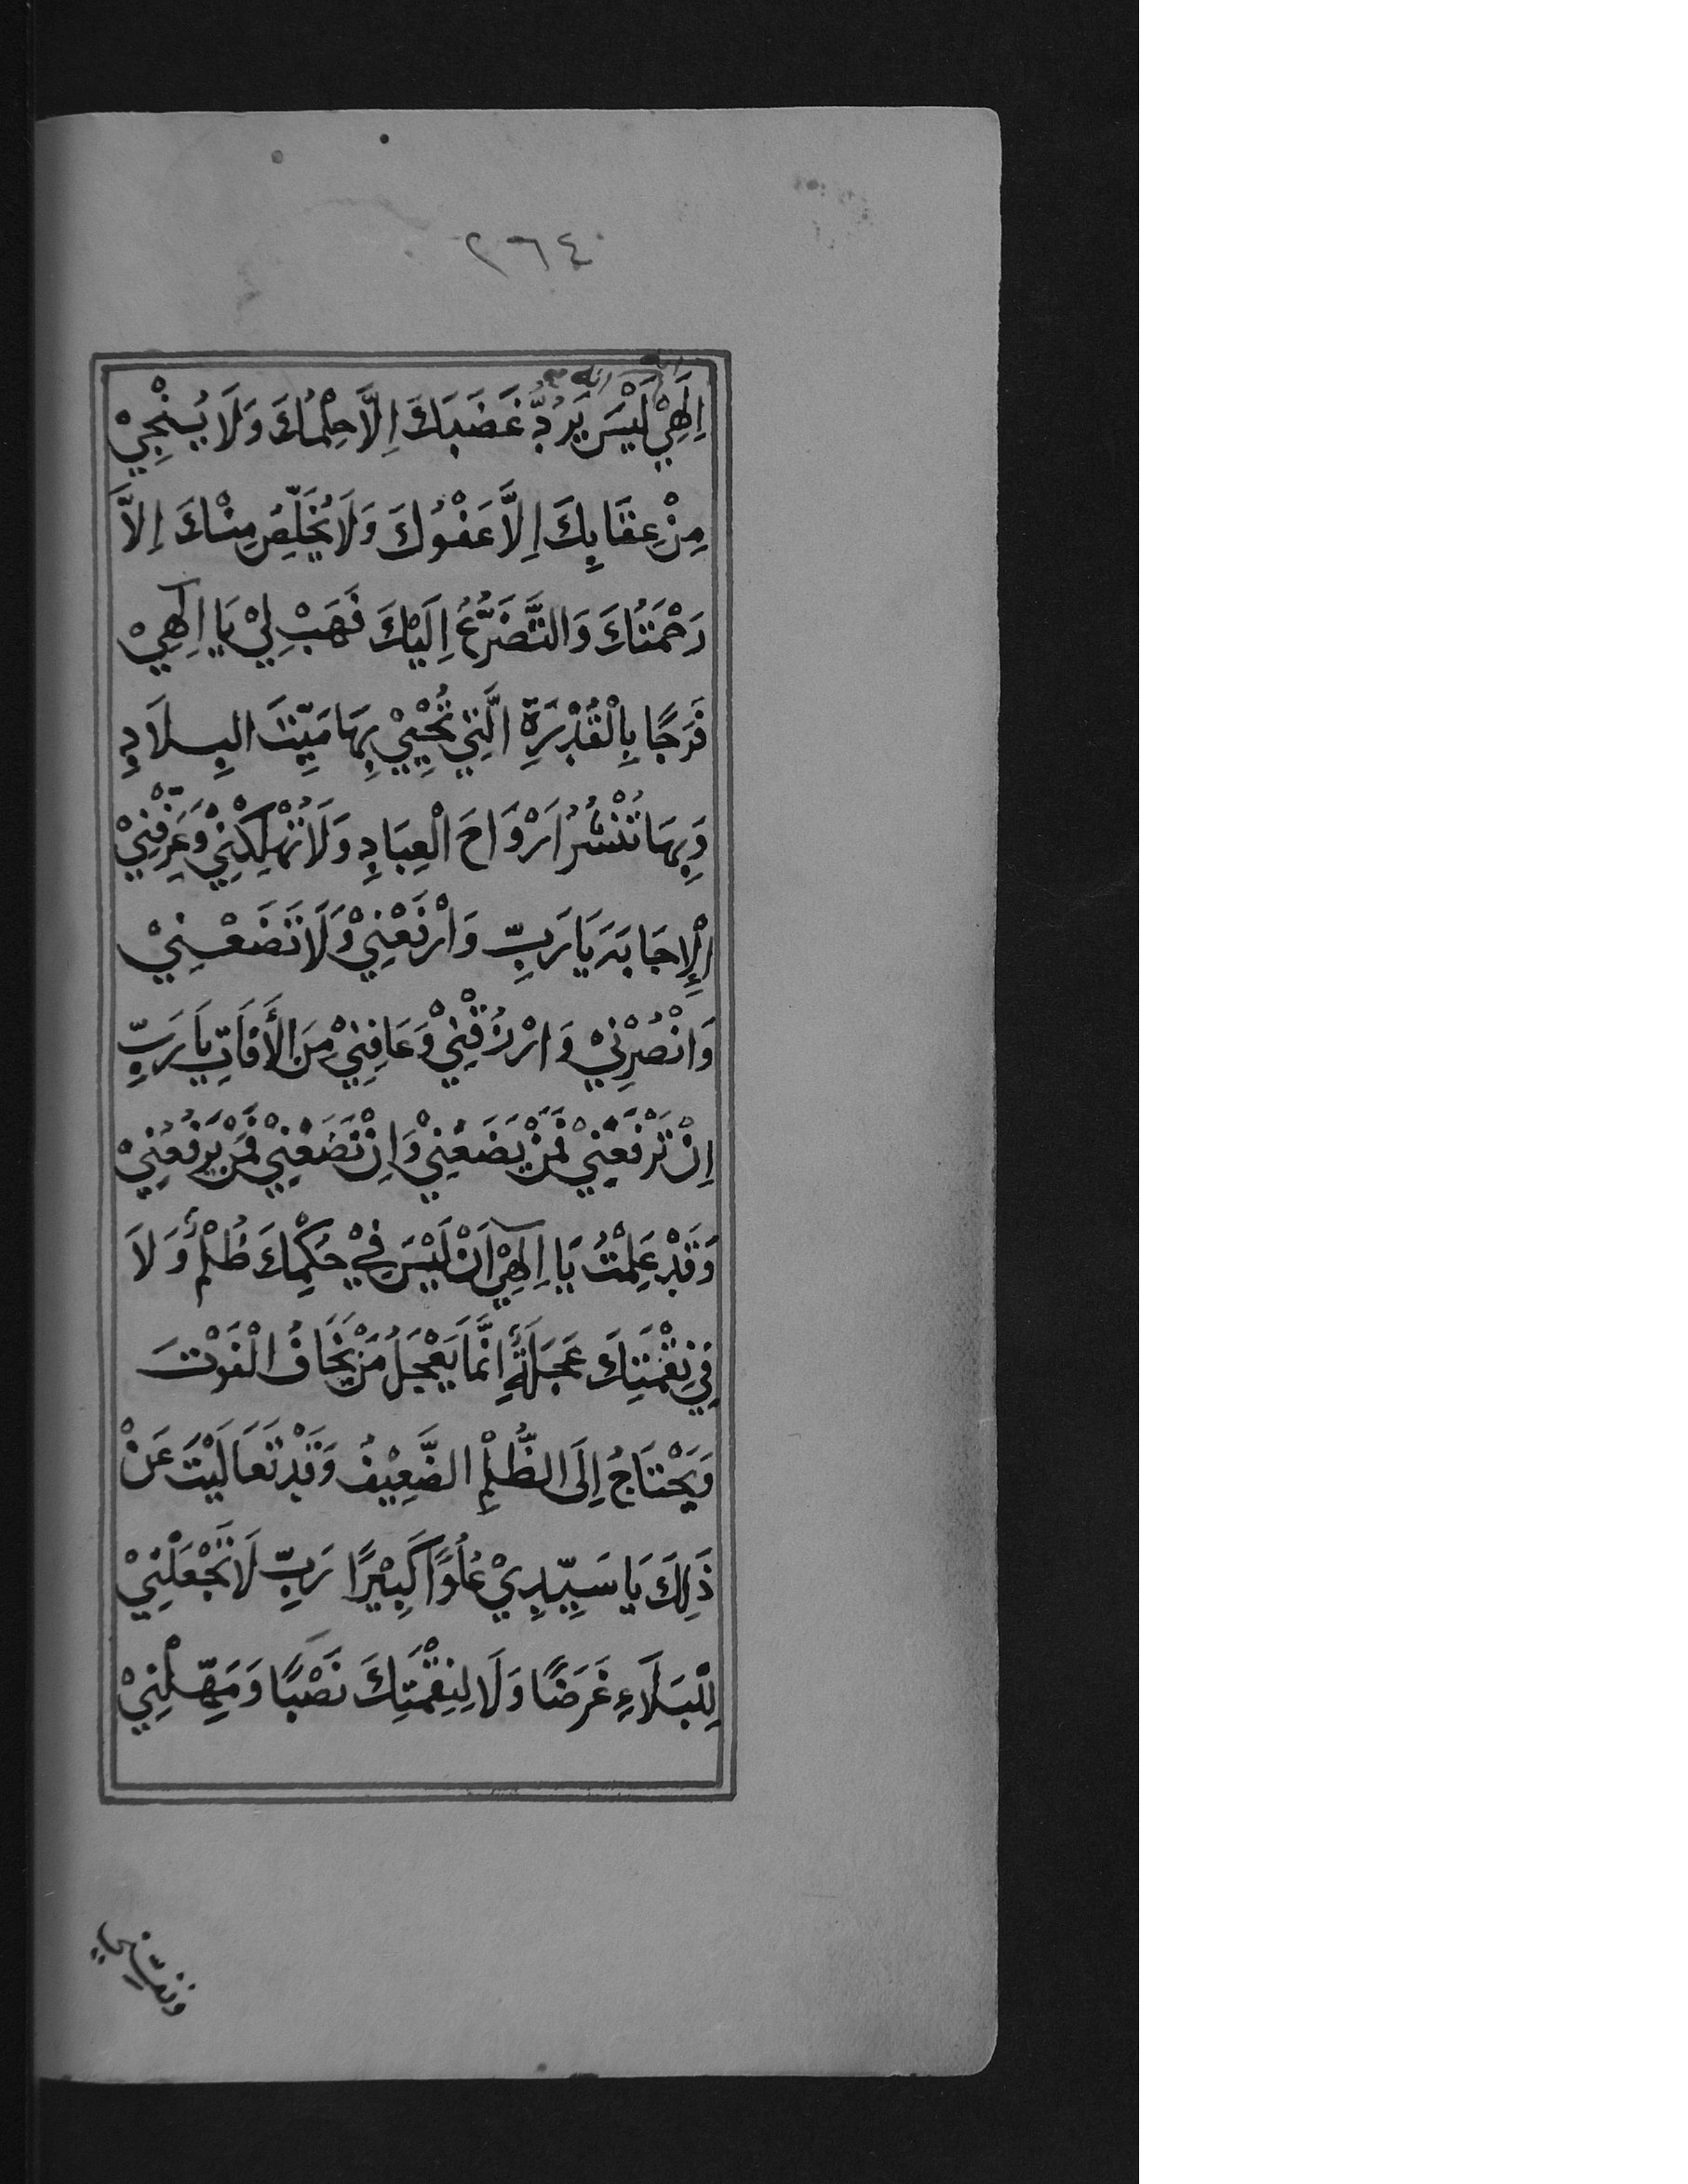 ٢٦٤
اِلَهِيْ لَيْسَ يَرُدُّ غَضَبَكَ اِلَّا حِلْمُكَ وَلَا يُنْجِيْ
مِنْ عِقَابِكَ اِلَّا عَفْوُكَ وَلَا يُخَلِّصُ مِنْكَ اِلَّا
رَحْمَتُكَ وَالتَّضَرُّعُ اِلَيْكَ فَهَبْ لِيْ يَا اِلٰهِيْ
فَرَجًا بِالْقُدْرَةِ الَّتِيْ تُحْيِيْ بِهَا مَيِّتَ البِلَادِ
وَبِهَا تَنْشُرُ اَرْوَاحَ الْعِبَادِ وَلَا تُهْلِكْنِيْ وَعَرِّفْنِيْ
الْإِجَابَةَ يَا رَبِّ وَارْفَعْنِيْ وَلَا تَضَعْنِيْ
وَانْصُرْنِيْ وَارْزُقْنِيْ وَعَافِنِيْ مِنَ الْأَفَاتِ يَا رَبِّ
اِنْ تَرْفَعْنِيْ فَمَنْ يَضَعُنِيْ وَاِنْ تَضَعْنِيْ فَمَنْ يَرْفَعُنِيْ
وَقَدْ عَلِمْتُ يَا اِلٰهِيْ اَنْ لَيْسَ فِيْ حُكْمِكَ ظُلْمٌ وَلَا
فِيْ نِقْمَتِكَ عَجَلَةٌ اِنَّمَا يَعْجَلُ مَنْ يَخَافُ الْفَوْتَ
وَيَحْتَاجُ اِلَى الظُّلْمِ الضَّعِيْفُ وَقَدْ تَعَالَيْتَ عَنْ
ذَلِكَ يَا سَيِّدِيْ عُلُوًّا كَبِيْرًا رَبِّ لَا تَجْعَلْنِيْ
لِلْبَلَاءِ غَرَضًا وَلَا لِنِقْمَتِكَ نَصْبًا وَمَهِّلْنِيْ
ونفسني